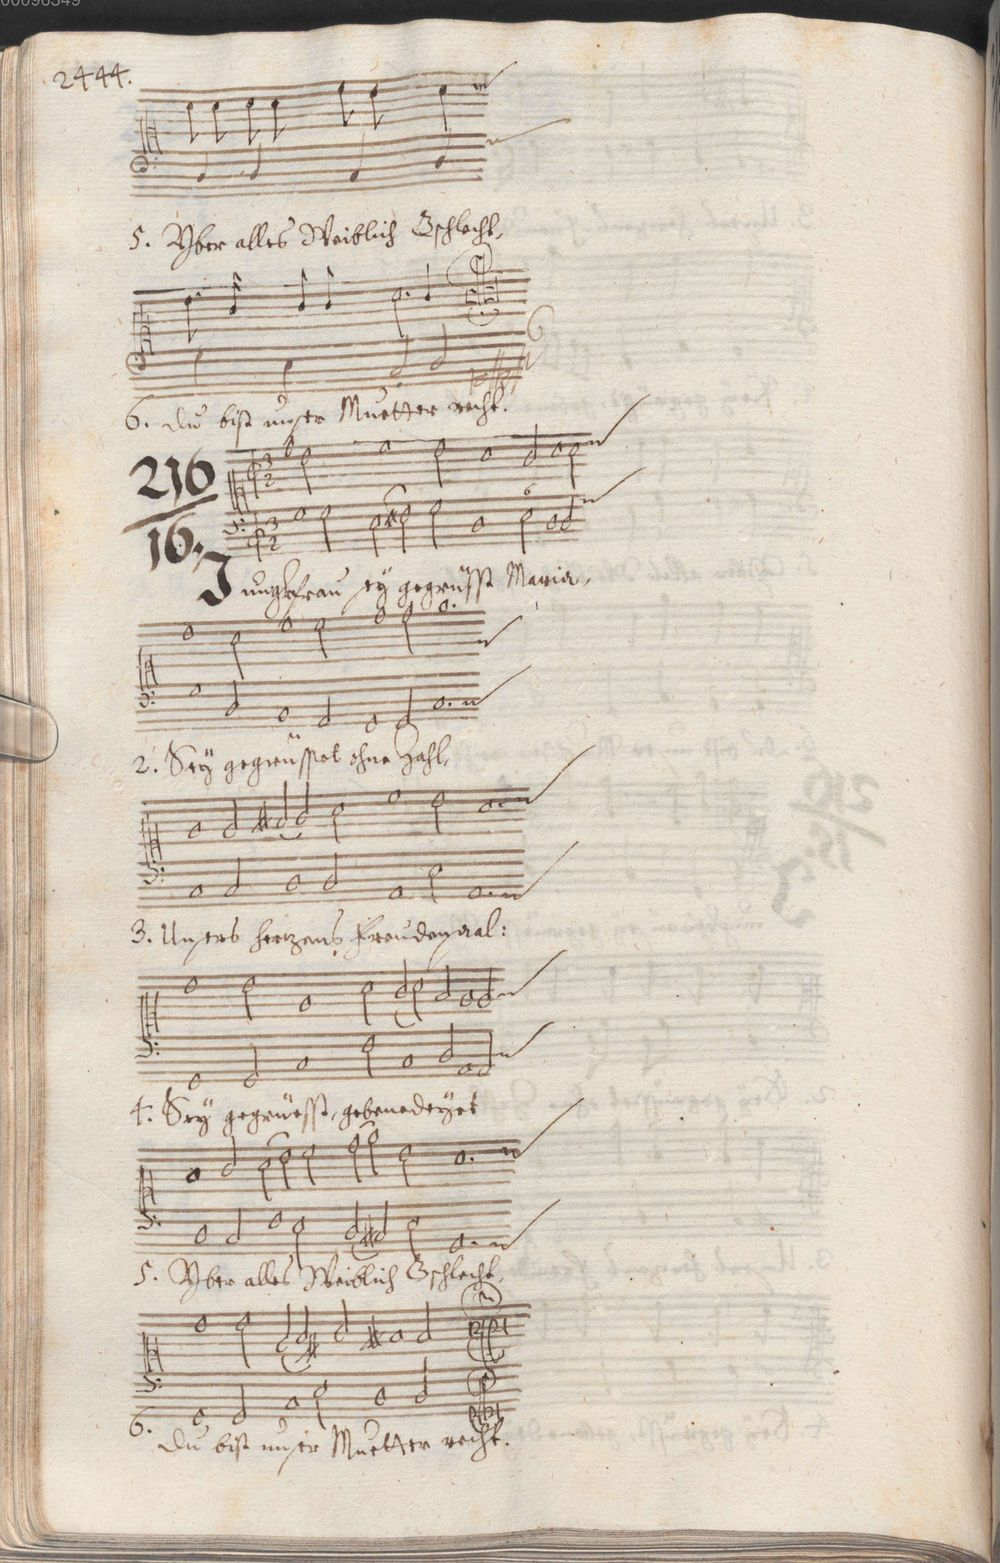 00096349
2444.
5. Yber alles Weiblich Gschlecht,
6. du bist unser Muetter recht.
216
16.
Jungkfrau sey gegrüsst Maria,
2. Sey gegrüsset ohne Zahl,
3. Unsers hertzens freudensaal:
4. Sey gegrüesst, gebenedeyet
5. Yber alles Weiblich Gschlecht,
6. du bist unser Muetter recht.